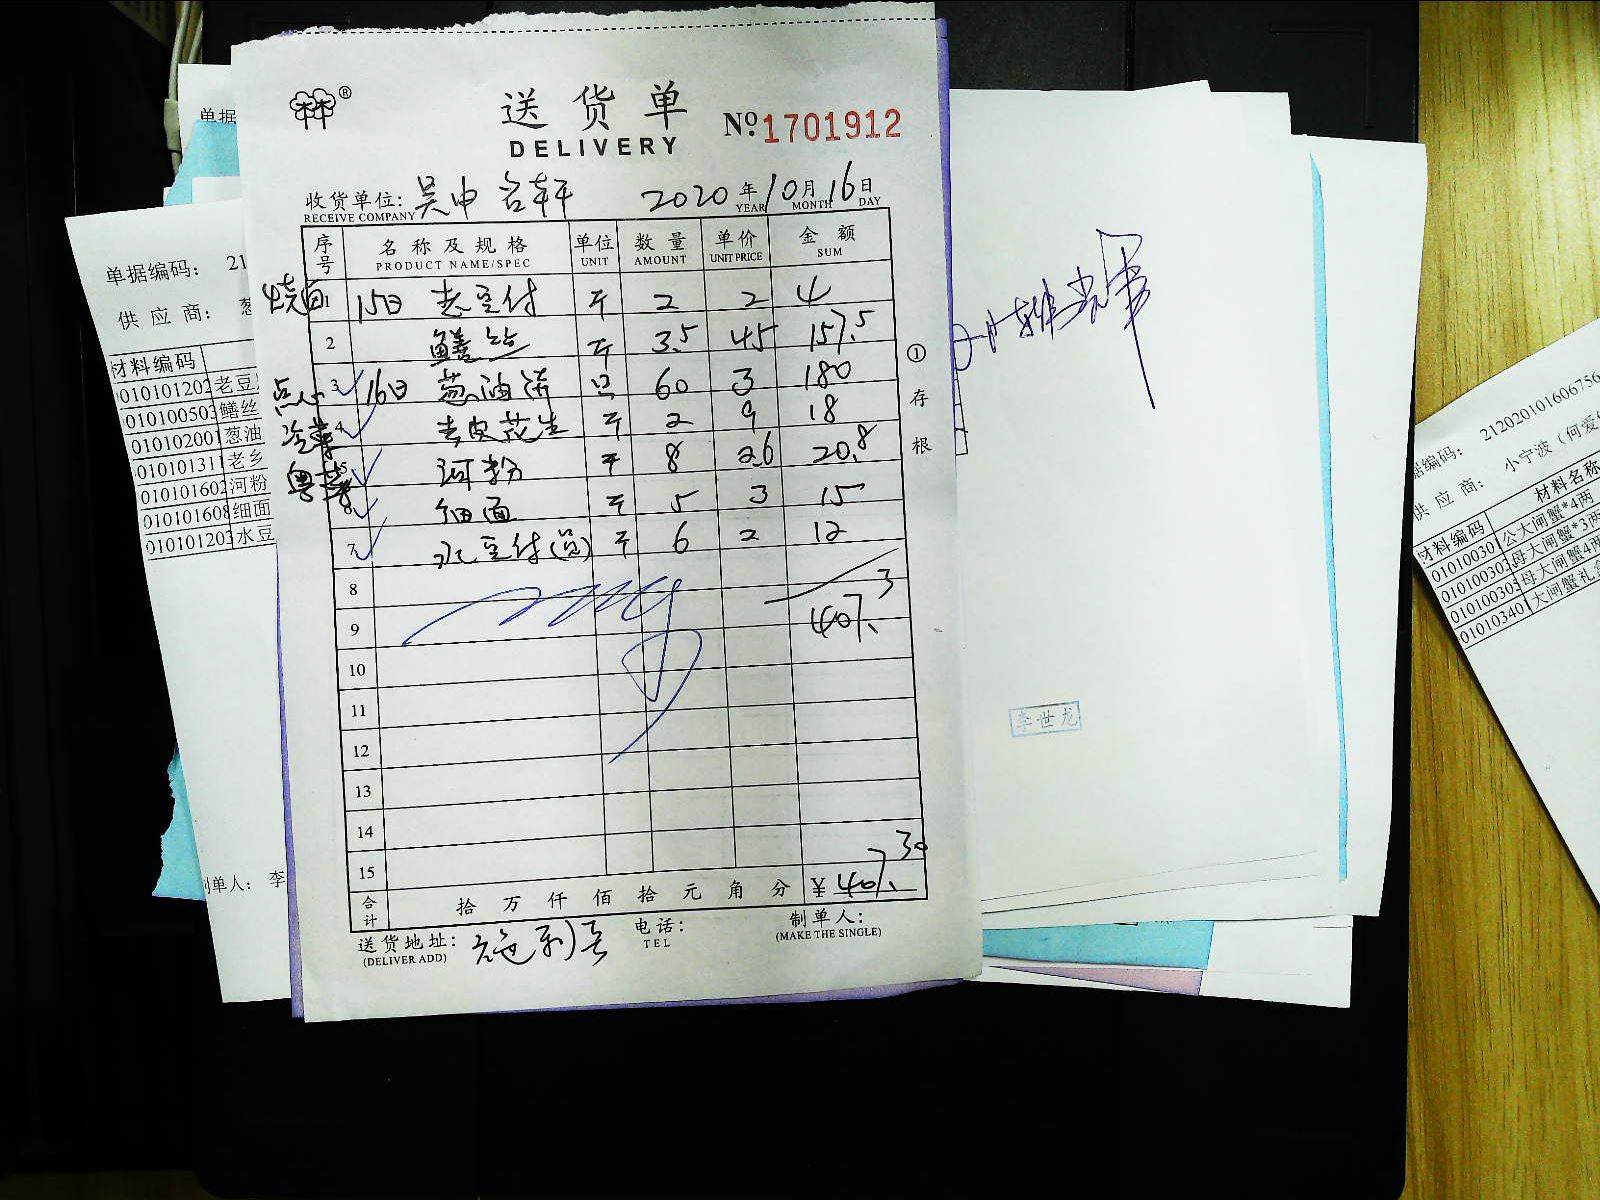 送货单
DELIVERY
№ 1701912
收货单位: 吴中名轩 2020年10月16日
RECEIVE COMPANY YEAR MONTH DAY
序号 名称及规格 单位 数量 单价 金额
PRODUCT NAME/SPEC UNIT AMOUNT UNIT PRICE SUM
1 15日 老豆付 斤 2 2 4
2 鳝丝 斤 3.5 45 157.5
点心 3 16日 葱油饼 只 60 3 180
冷菜 4 去皮花生 斤 2 9 18
粤菜 5 河粉 斤 8 2.6 20.8
6 细面 斤 5 3 15
7 水豆付(盒) 斤 6 2 12
8
9 407.3
10
11
12
13
14
15
合计 拾万仟佰拾元角分 ¥407.30
送货地址: 电话: 制单人:
(DELIVER ADD) TEL (MAKE THE SINGLE)
① 存根
单据
单据编码: 21
供应商: 葱
材料编码
010101202 老豆
010100503 鳝丝
010102001 葱油
010101311 老乡
010101602 河粉
010101608 细面
010101203 水豆
制单人: 李
李世龙
据编码: 212020101606756
供应商: 小宁波（何爱
材料编码 材料名称
01010030 公大闸蟹*4两
01010030 母大闸蟹*3两
01010030 母大闸蟹4两
01010340 大闸蟹礼盒